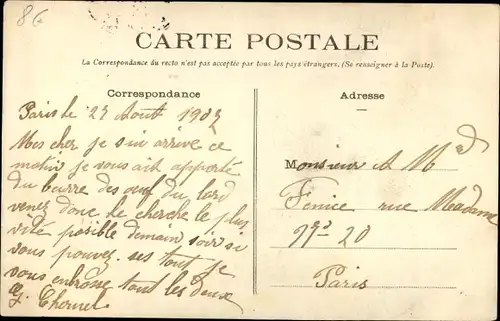 86
CARTE POSTALE
La Correspondance du recto n'est pas acceptée par tous les pays étrangers. (Se renseigner à la Poste).
Correspondance
Paris le 27 Aout 1907
Mes cher je sui arrive ce
matin je vous ait apporté
du beurre des oeuf du lard
venez donc le cherche le plus
vite posible demain soir si
vous pouvez. ses tout je
vous enbrosse tout les deux
Adresse
Monsieur A Md
Fenice rue Madame
20
Paris